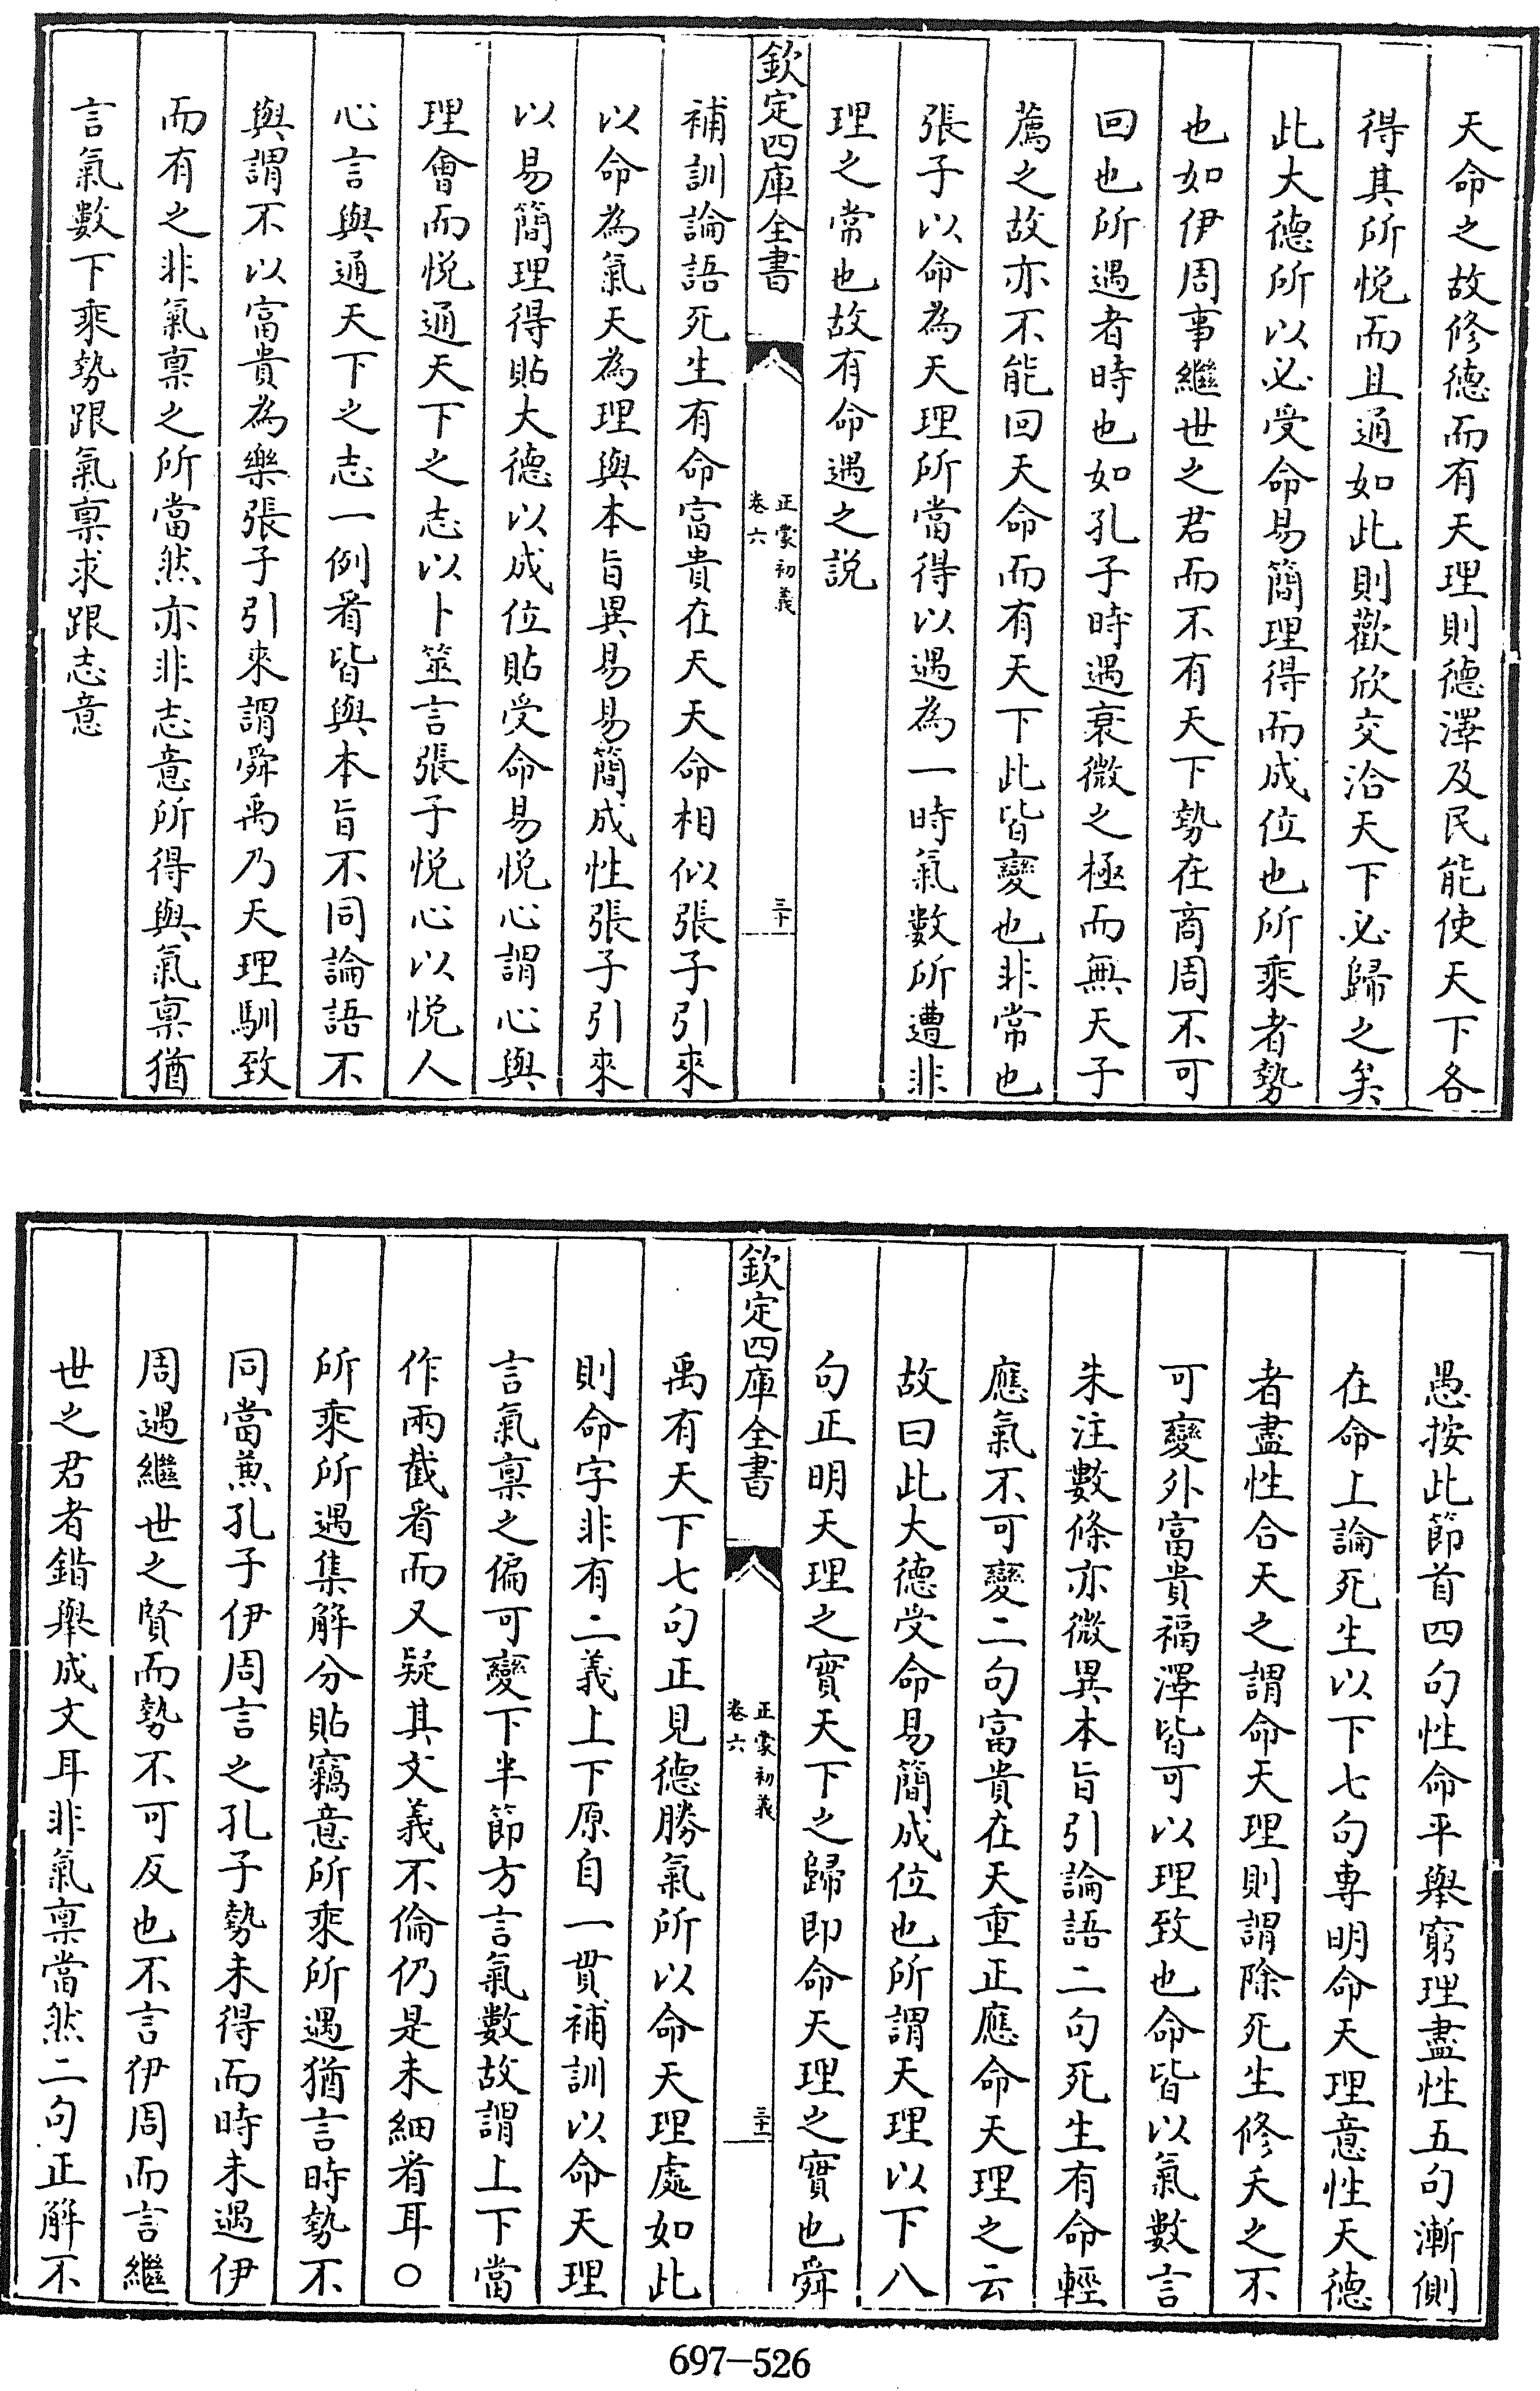 天命之故修德而有天理則德澤及民能使天下各
得其所悦而且通如此則歡欣交洽天下必歸之矣
此大德所以必受命易簡理得而成位也所乘者勢
也如伊周事繼世之君而不有天下勢在商周不可
回也所遇者時也如孔子時遇衰微之極而無天子
薦之故亦不能回天命而有天下此皆變也非常也
張子以命為天理所當得以遇為一時氣數所遭非
理之常也故有命遇之説
欽定四庫全書
正蒙初義
卷六
三十
補訓論語死生有命富貴在天天命相似張子引來
以命為氣天為理與本旨異易易簡成性張子引來
以易簡理得貼大德以成位貼受命易悦心謂心與
理會而悦通天下之志以卜筮言張子悦心以悦人
心言與通天下之志一例看皆與本旨不同論語不
與謂不以富貴為樂張子引來謂舜禹乃天理馴致
而有之非氣禀之所當然亦非志意所得與氣禀猶
言氣數下乘勢跟氣禀求跟志意
愚按此節首四句性命平舉窮理盡性五句漸側
在命上論死生以下七句專明命天理意性天德
者盡性合天之謂命天理則謂除死生修夭之不
可變外富貴福澤皆可以理致也命皆以氣數言
朱注數條亦微異本旨引論語二句死生有命輕
應氣不可變二句富貴在天天重正應命天理之云
故曰此大德受命易簡成位也所謂天理以下八
句正明天理之實天下之歸即命天理之實也舜
欽定四庫全書
正蒙初義
卷六
三十一
禹有天下七句正見德勝氣所以命天理處如此
則命字非有二義上下原自一貫補訓以命天理
言氣禀之偏可變下半節方言氣數故謂上下當
作兩截看而又疑其文義不倫仍是未細看耳○
所乘所遇集解分貼竊意所乘所遇猶言時勢不
同當兼孔子伊周言之孔子勢未得而時未遇伊
周遇繼世之賢而勢不可反也不言伊周而言繼
世之君者錯舉成文耳非氣禀當然二句正解不
697-526